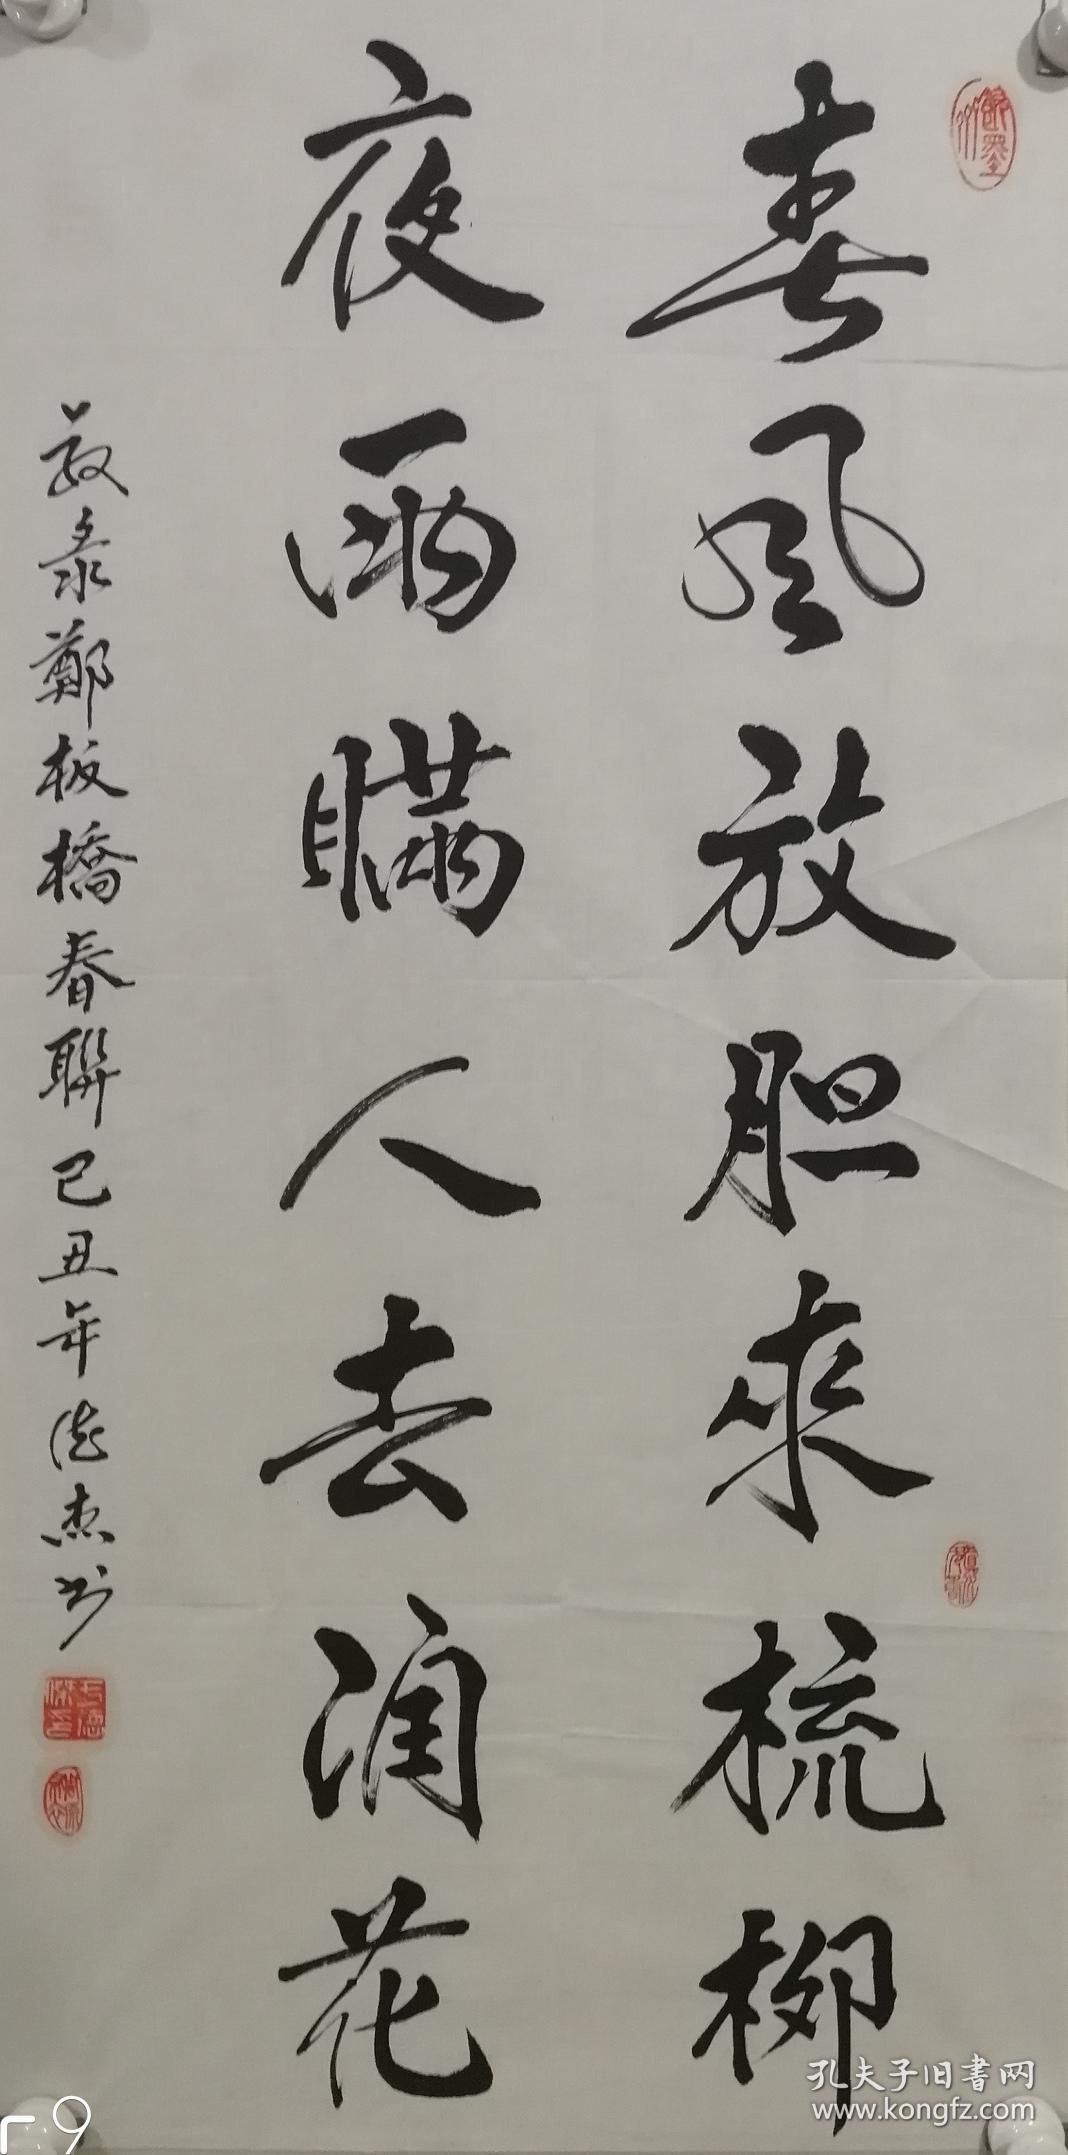 春風放胆來梳柳
夜雨瞞人去潤花
敬录鄭板橋春聯己丑年德杰书
孔夫子旧書网
www.kongfz.com
9